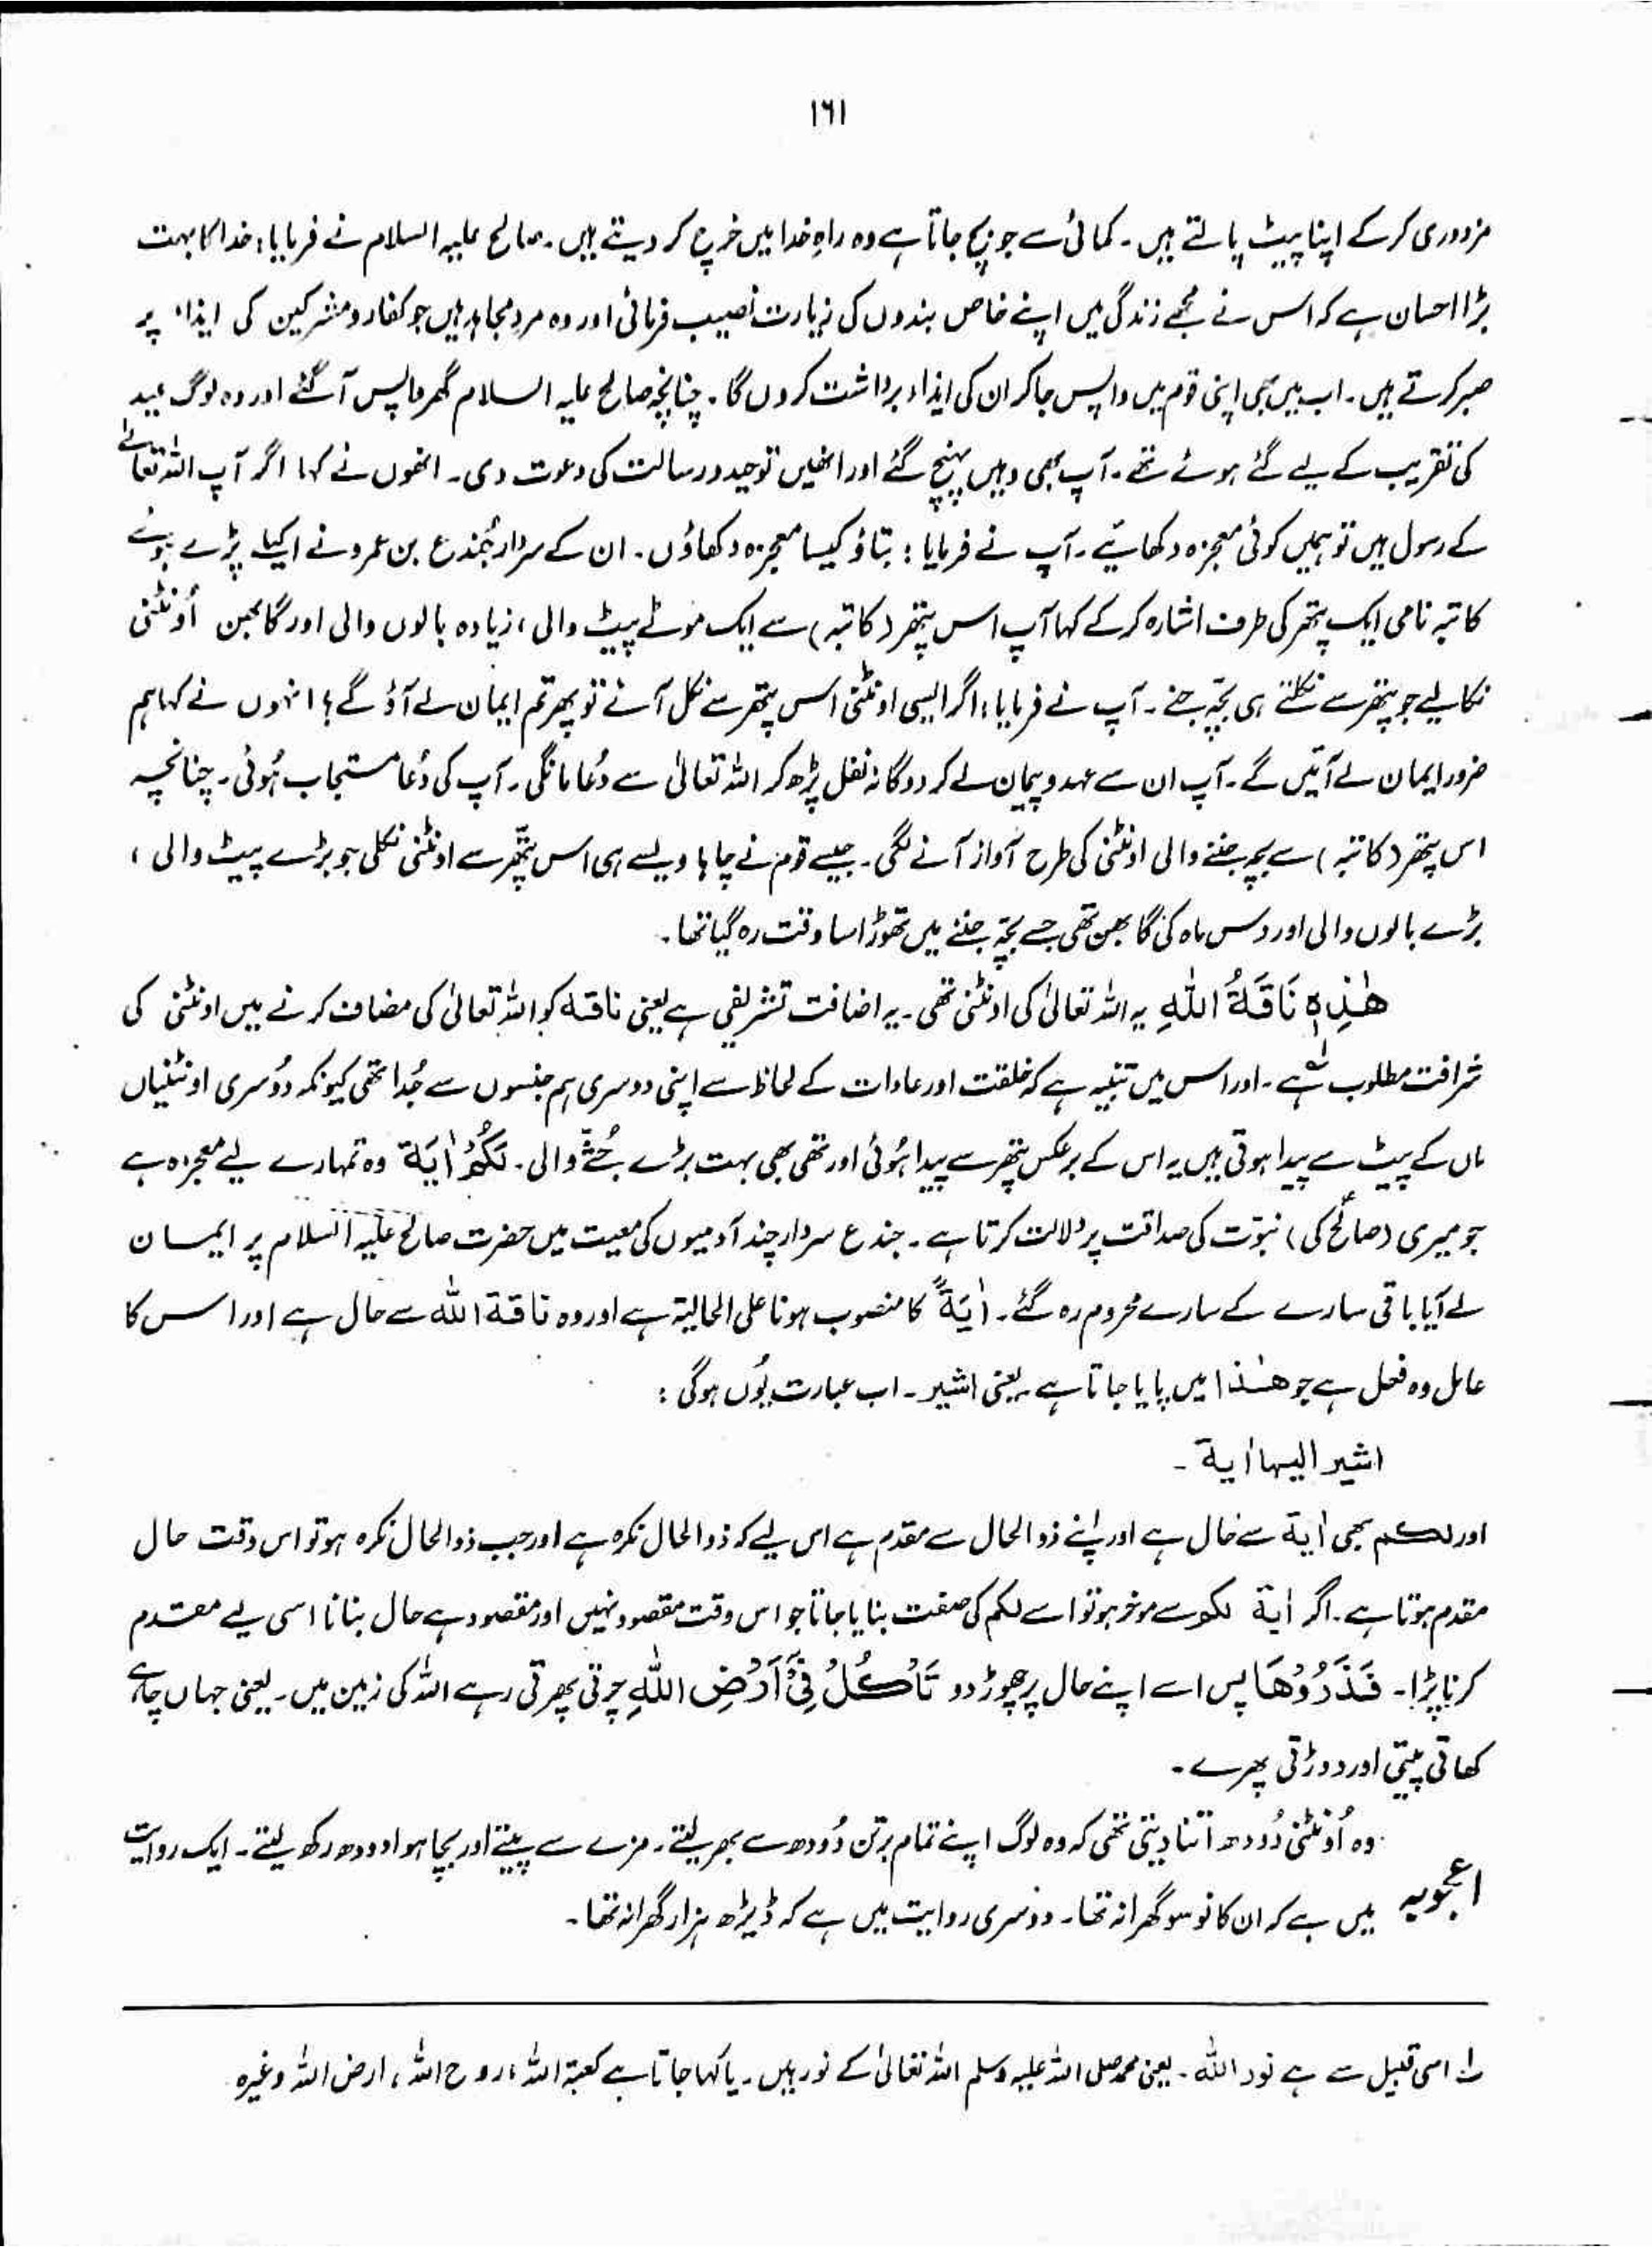 ۱۶۱
مزدوری کرکے اپنا پیٹ پالتے ہیں۔ کمائی سے جو بچ جاتا ہے وہ راہِ خدا میں خرچ کر دیتے ہیں۔ صالح علیہ السلام نے فرمایا: خدا کا بہت
بڑا احسان ہے کہ اس نے مجھے زندگی میں اپنے خاص بندوں کی زیارت نصیب فرمائی اور وہ مردِ مجاہد ہیں جو کفار و مشرکین کی ایذاء پر
صبر کرتے ہیں۔ اب میں بھی اپنی قوم میں واپس جا کر ان کی ایذاء برداشت کروں گا۔ چنانچہ صالح علیہ السلام گھر واپس آ گئے اور وہ لوگ عید
کی تقریب کے لیے گئے ہوئے تھے۔ آپ بھی وہیں پہنچ گئے اور انھیں توحید و رسالت کی دعوت دی۔ انھوں نے کہا اگر آپ اللہ تعالےٰ
کے رسول ہیں تو ہمیں کوئی معجزہ دکھائیے۔ آپ نے فرمایا: بتاؤ کیسا معجزہ دکھاؤں۔ ان کے سردار جُندع بن عمرو نے اکیلے پڑے ہوئے
کاتبہ نامی ایک پتھر کی طرف اشارہ کرکے کہا آپ اس پتھر (کاتبہ) سے ایک موٹے پیٹ والی، زیادہ بالوں والی اور گابھن اُونٹنی
نکالیے جو پتھر سے نکلتے ہی بچّہ جنے۔ آپ نے فرمایا: اگر ایسی اونٹنی اس پتھر سے نکل آئے تو پھر تم ایمان لے آؤ گے؟ انہوں نے کہا ہم
ضرور ایمان لے آئیں گے۔ آپ ان سے عہد و پیمان لے کر دوگانہ نفل پڑھ کر اللہ تعالیٰ سے دُعا مانگی۔ آپ کی دُعا مستجاب ہُوئی۔ چنانچہ
اس پتھر (کاتبہ) سے بچہ جننے والی اونٹنی کی طرح آواز آنے لگی۔ جیسے قوم نے چاہا ویسے ہی اس پتّھر سے اونٹنی نکلی جو بڑے پیٹ والی،
بڑے بالوں والی اور دس ماہ کی گابھن تھی جسے بچّہ جننے میں تھوڑا سا وقت رہ گیا تھا۔
هٰذِهٖ نَاقَةُ اللّٰهِ یہ اللہ تعالیٰ کی اونٹنی تھی۔ یہ اضافت تشریفی ہے یعنی ناقۃ کو اللہ تعالیٰ کی مضاف کرنے میں اونٹنی کی
شرافت مطلوب ہے۔ اور اس میں تنبیہ ہے کہ خلقت اور عادات کے لحاظ سے اپنی دوسری ہم جنسوں سے جُدا تھی کیونکہ دُوسری اونٹنیاں
ماں کے پیٹ سے پیدا ہوتی ہیں یہ اس کے برعکس پتھر سے پیدا ہُوئی اور تھی بھی بہت بڑے جُثّے والی۔ لَكُمْ اٰيَة وہ تمہارے لیے معجزہ ہے
جو میری (صالح کی) نبوّت کی صداقت پر دلالت کرتا ہے۔ جندع سردار چند آدمیوں کی معیت میں حضرت صالح علیہ السلام پر ایمان
لے آیا باقی سارے کے سارے محروم رہ گئے۔ اٰيَةً کا منصوب ہونا علی الحالیۃ ہے اور وہ ناقۃ اللہ سے حال ہے اور اس کا
عامل وہ فعل ہے جو ھٰذا میں پایا جاتا ہے یعنی اشیر۔ اب عبارت یُوں ہوگی:
اشیر الیہا اٰیۃ۔
اور لکم بھی اٰیۃ سے حال ہے اور اپنے ذوالحال سے مقدم ہے اس لیے کہ ذوالحال نکرہ ہے اور جب ذوالحال نکرہ ہو تو اس وقت حال
مقدم ہوتا ہے۔ اگر اٰیۃ لکم سے موخر ہو تو اسے لکم کی صفت بنایا جاتا جو اس وقت مقصود نہیں اور مقصود ہے حال بنانا اسی لیے مقدم
کرنا پڑا۔ فَذَرُوْهَا پس اسے اپنے حال پر چھوڑ دو تَاْكُلْ فِيْٓ اَرْضِ اللّٰهِ چرتی پھرتی رہے اللہ کی زمین میں۔ یعنی جہاں چاہے
کھاتی پیتی اور دوڑتی پھرے۔
وہ اُونٹنی دُودھ اتنا دیتی تھی کہ وہ لوگ اپنے تمام برتن دُودھ سے بھر لیتے۔ مزے سے پیتے اور بچا ہوا دودھ رکھ لیتے۔ ایک روایت
اعجوبہ میں ہے کہ ان کا نو سو گھرانہ تھا۔ دوسری روایت میں ہے کہ ڈیڑھ ہزار گھرانہ تھا۔
لہ اسی قبیل سے ہے نور اللہ۔ یعنی محمد صلی اللہ علیہ وسلم اللہ تعالیٰ کے نور ہیں۔ یا کہا جاتا ہے کعبۃ اللہ، روح اللہ، ارض اللہ وغیرہ